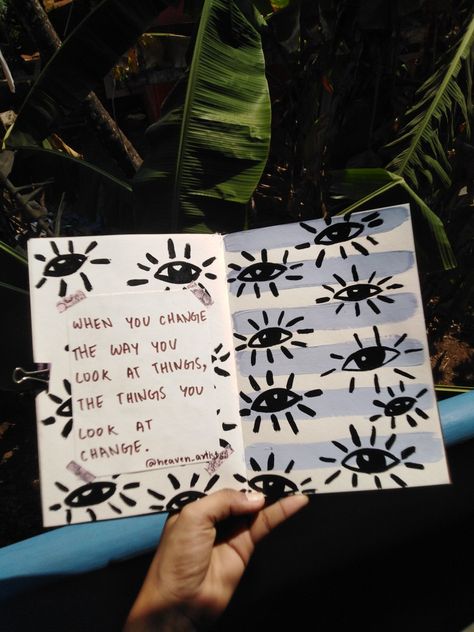 WHEN YOU CHANGE
THE WAY YOU
LOOK AT THINGS,
THE THINGS YOU
LOOK AT
CHANGE.